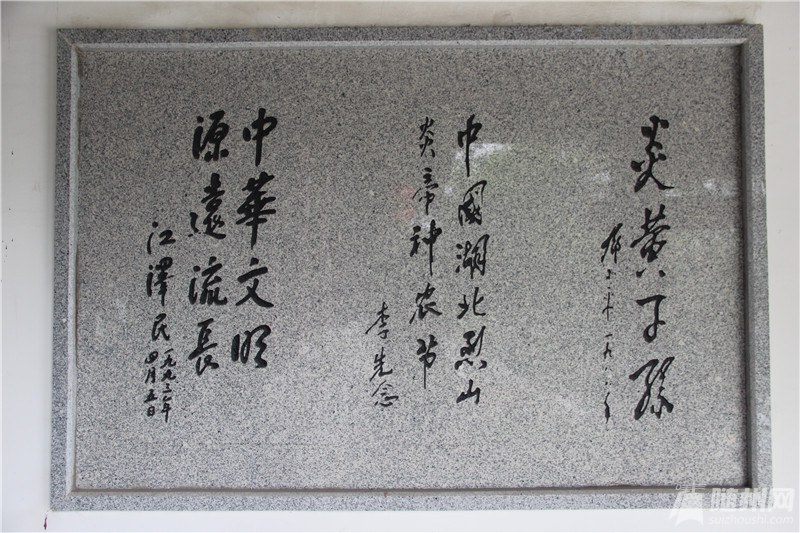 炎黄子孫
一九八八年
中國湖北烈山
炎帝神农节
李先念
中華文明
源遠流長
江澤民
一九九三年
四月五日
随州网
suizhoushi.com